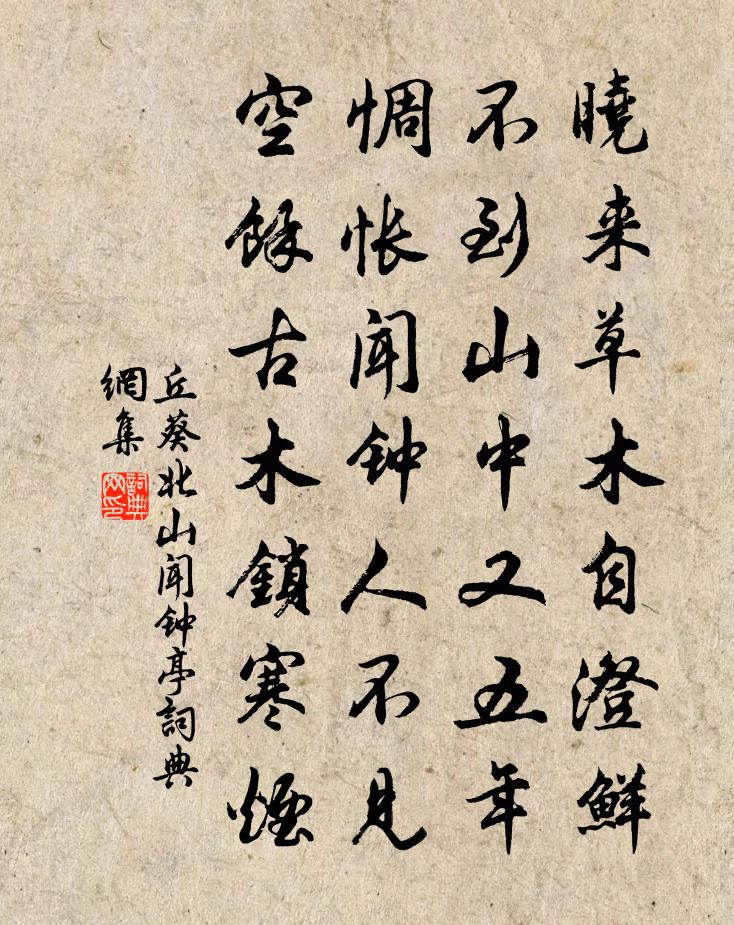 曉来草木自澄鮮
不到山中又五年
惆怅闻钟人不見
空餘古木鎖寒煙
丘葵北山闻钟亭詞典
網集
詞典
网印